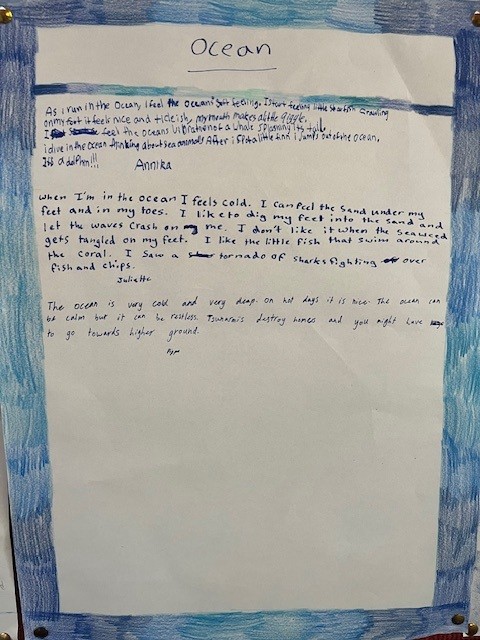 Ocean
As i run in the Ocean, I feel the oceans soft feeling. I start feeling little starfish crawling
on my foot it feels nice and ticleish, my mouth makes a little giggle.
I feel the oceans vibration of a whale splashing its tail,
i dive in the ocean thinking about sea anamals After i spot a little finn i Jumps out of the ocean,
Its a dolphin!!!
Annika
when I'm in the ocean I feels cold. I can feel the sand under my
feet and in my toes. I like to dig my feet into the sand and
let the waves crash on me. I don't like it when the seaweed
gets tangled on my feet. I like the little fish that swim around
the coral. I saw a tornado of sharks fighting over
fish and chips.
Juliette
The ocean is very cold and very deap. On hot days it is nice. The ocean can
be calm but it can be restless. Tsunarmis destroy homes and you might have
to go towards higher ground.